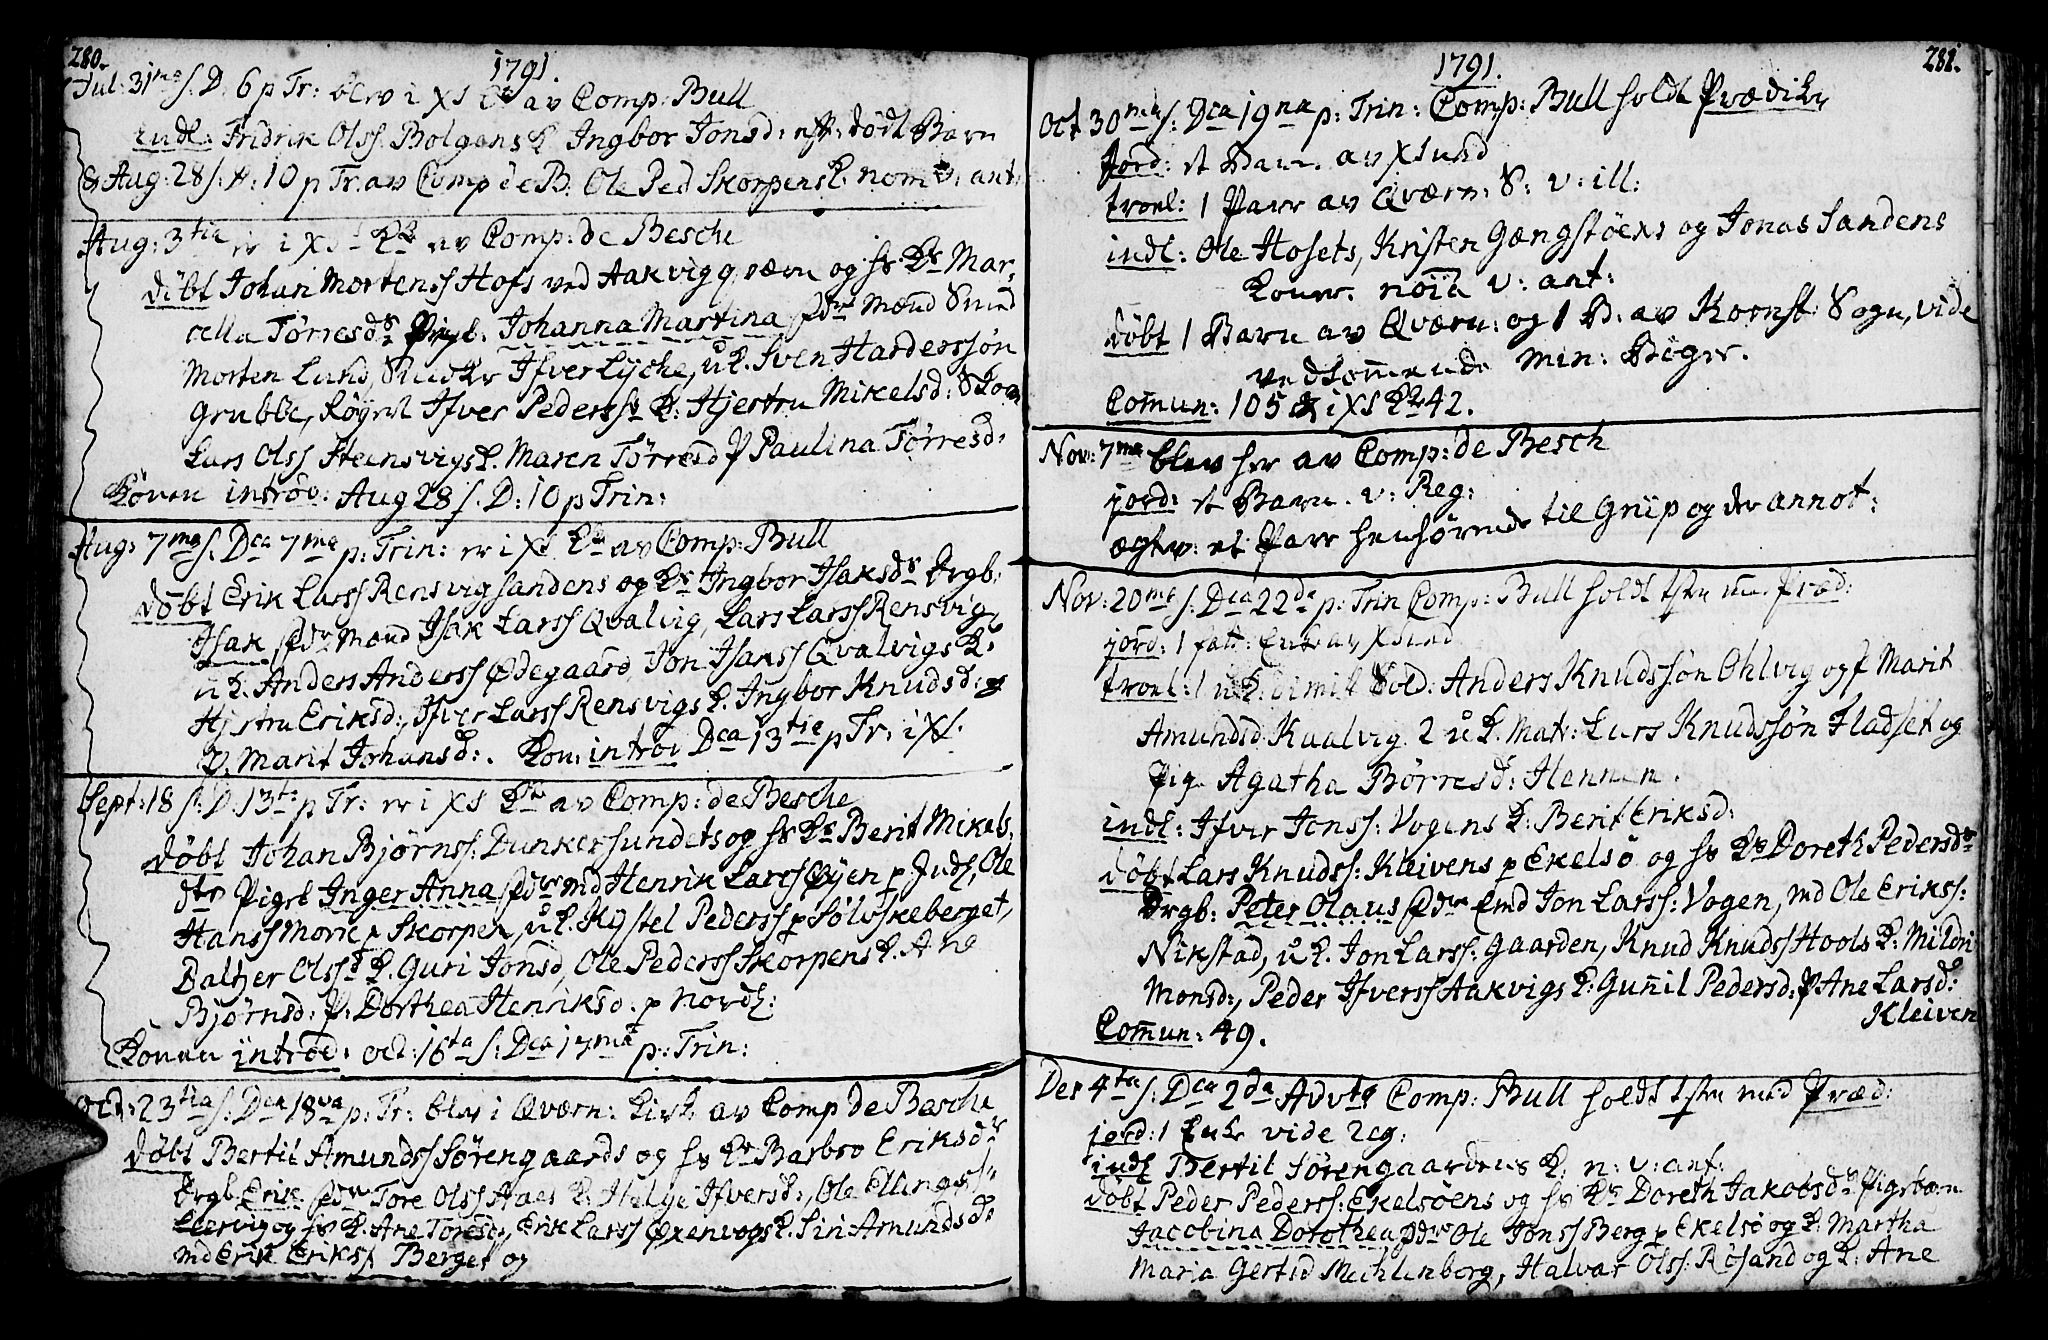 280.
1791.
Jul: 31ma s. D. 6 p Tr: blev i XS av Comp: Bull
indl: Fridrik Olss Bolgens K Ingbor Jonsd: eft: dødt Barn
& Aug: 28 s. 10 p Tr. av Comp de B. Ole Ped Skorpens K. nom: ant:
Aug: 3tia er i XS av Comp: de Besche
døbt Johan Mortenss Hofs ved Aakvig qværn og hs Ks Mar:
cella Tørresdr Pigeb. Johanna Martina fdre Mænd Smed
Morten Lund, Snedker Ifver Lÿche, uk. Sven Hardersson
Grubbe, Røgrt Ifver Pederss K: Hjertru Mikelsd:
Lars Olss Steensvigs K. Maren Tørresd P Paulina Tørresd:
Konen introd: Aug 28 s. D: 10 p Trin:
Aug: 7ma s. Dca 7ma p: Trin: er i XS av Comp: Bull
døbt Erik Larss Rensvigsandens og Ks Ingbor Isaksdr Drgb:
Isak fdre Mænd Isak Larss Qvalvig, Lars Larss Rensvig,
uk. Anders Anderss Ødegaard, Jon Isakss Qvalvigs K:
Hjertru Eriksd:, Ifver Larss Rensvigs K. Ingbor Knudsd: &
P. Marit Johansd:. Kon: introd Dca 13tia p Tr: i XS.
Sept: 18 s. D. 13ta p Tr: er i XS av Comp: de Besche
døbt Johan Bjørnss: Dunkersundets og hs Ks Berit Mikels
dtr Pigeb Inger Anna fdre md Henrik Larss Øyen p Indl, Ole
Hanss Morie p Skorpen, uk. Kystel Pederss p Sølvskeberget,
Baltzer Olss K. Guri Jonsd, Ole Pederss Skorpens K. Ane
Bjørnsd: P: Dorthea Henriksd. p Nordl:
Konen introd: oct: 16ta s: Dca 17ma p: Trin:
Oct: 23tia s. Dca 18va p: Tr: blev i Qværn: Kirk. av Comp de Besche
døbt Bertil Amundss Sørengaards og hs Ks Barbro Eriksdr
Drgb. Erik fdre Tore Olss Aaes K. Helge Ifversd:, Ole Ellingss:
Leervig og hs K. Ane Toresd, Erik Larss Oxenvogs K. Siri Amundsd:
md Erik Erikss Berget og
1791.
281.
Oct 30ma s: Dca 19na p: Trin: Comp: Bull holdt Prædik
jord: et Barn av Xsund
troel: 1 Parr av Qværn: S: v: ill:
indl: Ole Hosets, Kristen Gængstøens og Jonas Sandens
Koner. noia v: ant:
døbt 1 Barn av Qværn: og 1 B: av Kornst: Sogn, vide
vedkommende Min: Bøger.
Commun: 105 & i XS 42.
Nov: 7ma blev her av Comp: de Besch
jord: et Barn. v: Reg:
ægtev: et Parr henhørende til Grip og der annot:
Nov: 20ma s. Dca 22da p: Trin Comp: Bull holdt tjen m. Præd:
jord: 1 fatt: Enke av Xsund
troel: 1 uk. dimit Sold: Anders Knudssøn Ohlvig og P Marit
Amundsd Kvalvig 2 uk. Matr: Lars Knudssøn Fladset og
Pig. Agatha Børresd: Hennen.
indl: Ifver Jonss: Vogens K: Berit Eriksd:
døbt Lars Knudss: Kleivens p Ekelsø og hs Ks Doreth Pedersdr
Drgb: Peter Olaus fdre Emd Jon Larss: Vogen, md Ole Erikss:
Nikstad, uk. Jon Larss: Gaarden, Knud Knudss Hools K: Mildri
Monsd:, Peder Ifverss Aakvigs K: Gunnil Pedersd: P Ane Larsd:
Kleiven
Commun: 49.
Der 4ta s: Dca 2da Advts Comp: Bull holdt tjen med Præd:
jord: 1 Enke vide Reg:
indl Bertil Sørengaardens K. n: v: ant:
døbt Peder Pederss: Ekelsøens og hs Ks Doreth Jakobsdr Pigebarn
Jacobina Dorothea fdre Ole Jonss Berg p Ekelsø og K. Martha
Maria Gertsd Mechlenborg, Halvar Olss: Røsand og K: Ane